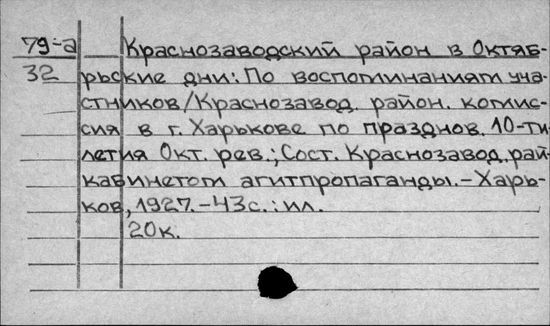 79-а Краснозаводский район в Октяб-
32 рьские дни: По воспоминаниям уча-
стников/Краснозавод. район. комис-
сия в г. Харькове по празднов. 10-ти
летия Окт. рев.; Сост. Краснозавод. рай-
кабинетом агитпропаганды.-Харь-
ков, 1927.-43с.: ил.
20к.